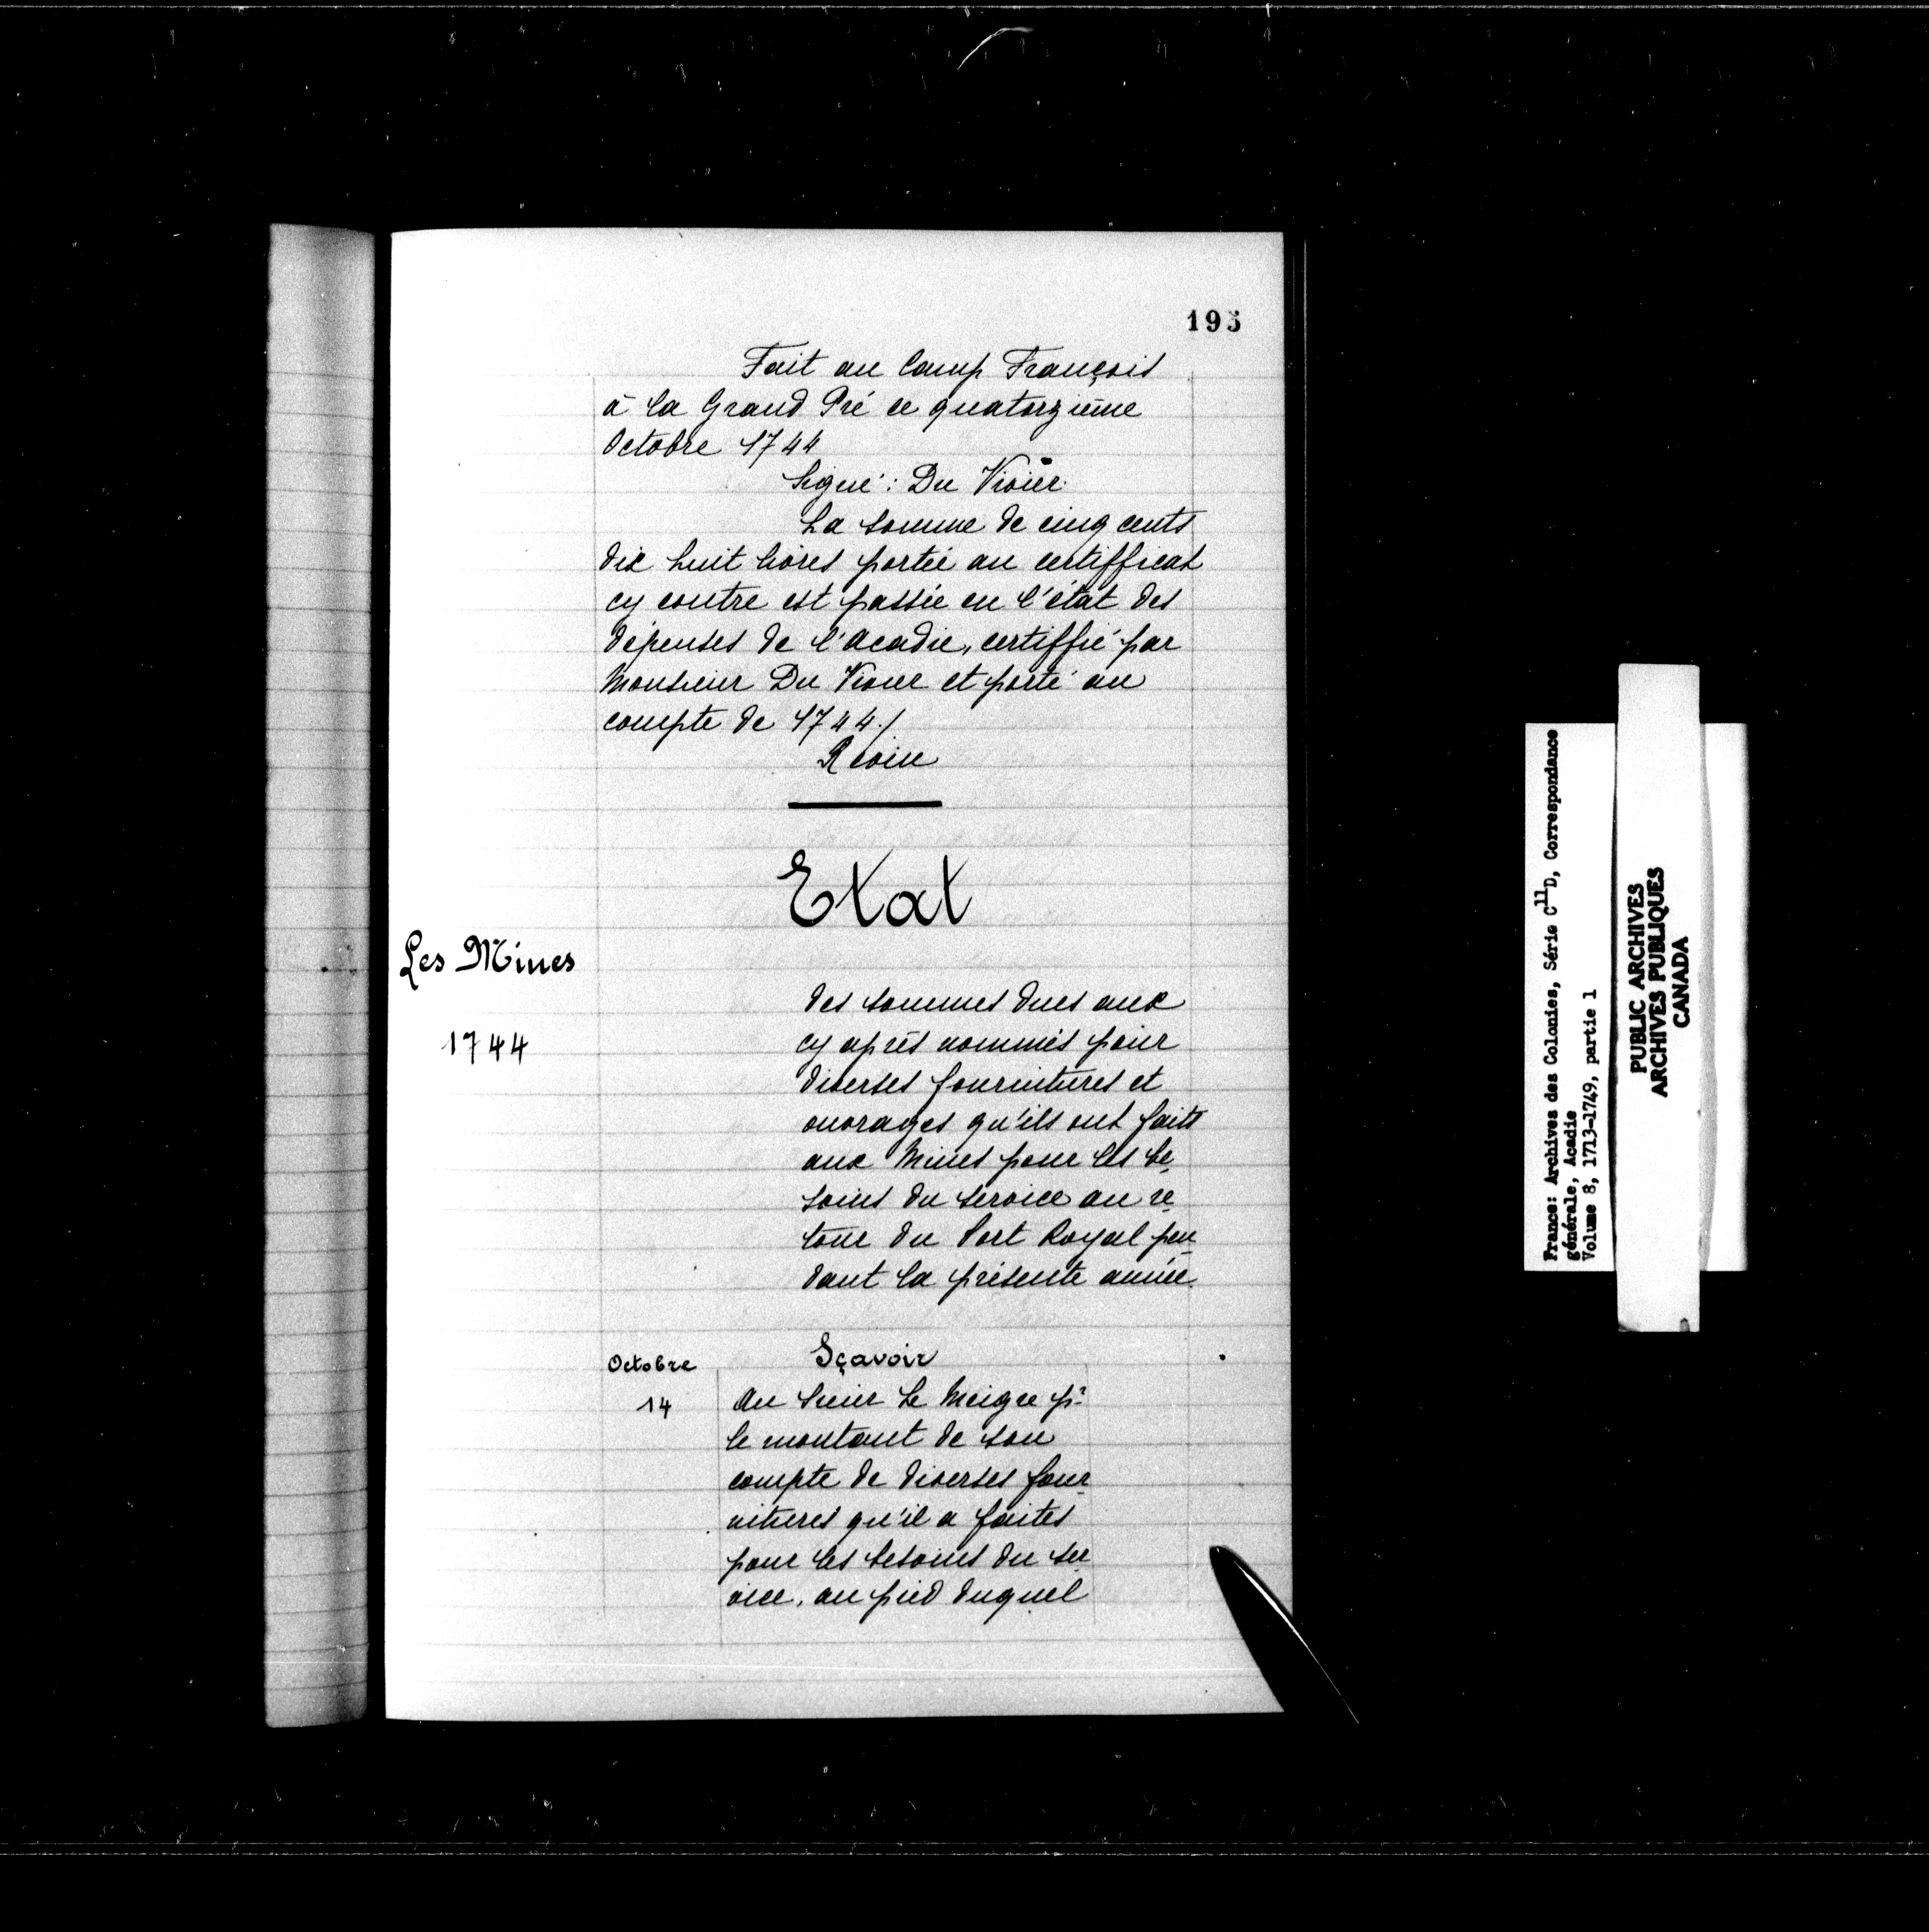 195
Fait au Camp François
à la Grand Pré ce quatorzième
Octobre 1744
Signé : Du Vivier.
La somme de cinq cents
dix huit livres portée au certifficat
cy contre est passée en l'état des
dépenses de l'Acadie, certiffié par
Monsieur Du Vivier et porté au
compte de 1744./
Etat
Les Mines
1744
des sommes dues aux
cy après nommés pour
diverses fournitures et
ouvrages qu'ils ont faits
aux Mines pour les be
soins du service au re
tour du Port Royal pen
dant la présente année.
Octobre
Sçavoir
14
Au Sieur Le Meigre pr
le montant de son
compte de diverses four
nitures qu'il a faites
pour les besoins du ser
vice, au pied duquel
France: Archives des Colonies, Série C11D, Correspondance
générale, Acadie
Volume 8, 1713-1749, partie 1
PUBLIC ARCHIVES
ARCHIVES PUBLIQUES
CANADA